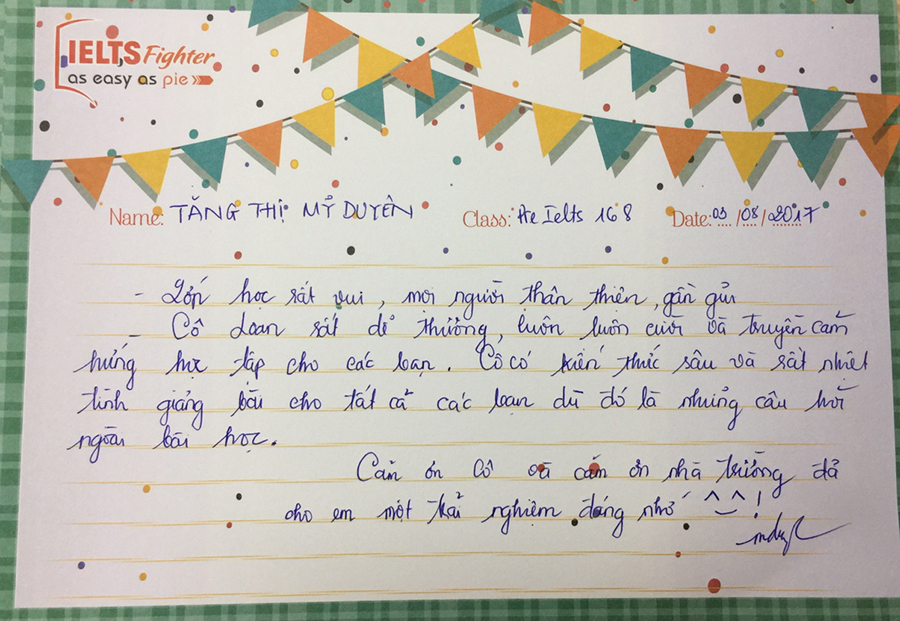 IELTS Fighter
as easy as pie
Name: TĂNG THỊ MỸ DUYÊN Class: Pre Ielts 168 Date: 03/08/2017
- Lớp học rất vui, mọi người thân thiện, gần gũi
- Cô Loan rất dễ thương, luôn luôn cười và truyền cảm
hứng học tập cho các bạn. Cô có kiến thức sâu và rất nhiệt
tình giảng bài cho tất cả các bạn dù đó là những câu hỏi
ngoài bài học.
Cảm ơn Cô và cảm ơn nhà trường đã
cho em một trải nghiệm đáng nhớ ^_^!